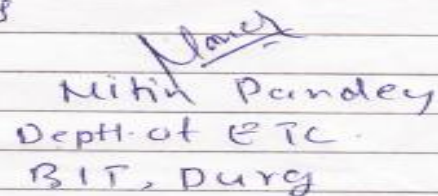 Nitin Pandey
Deptt. of ETC.
BIT, Durg